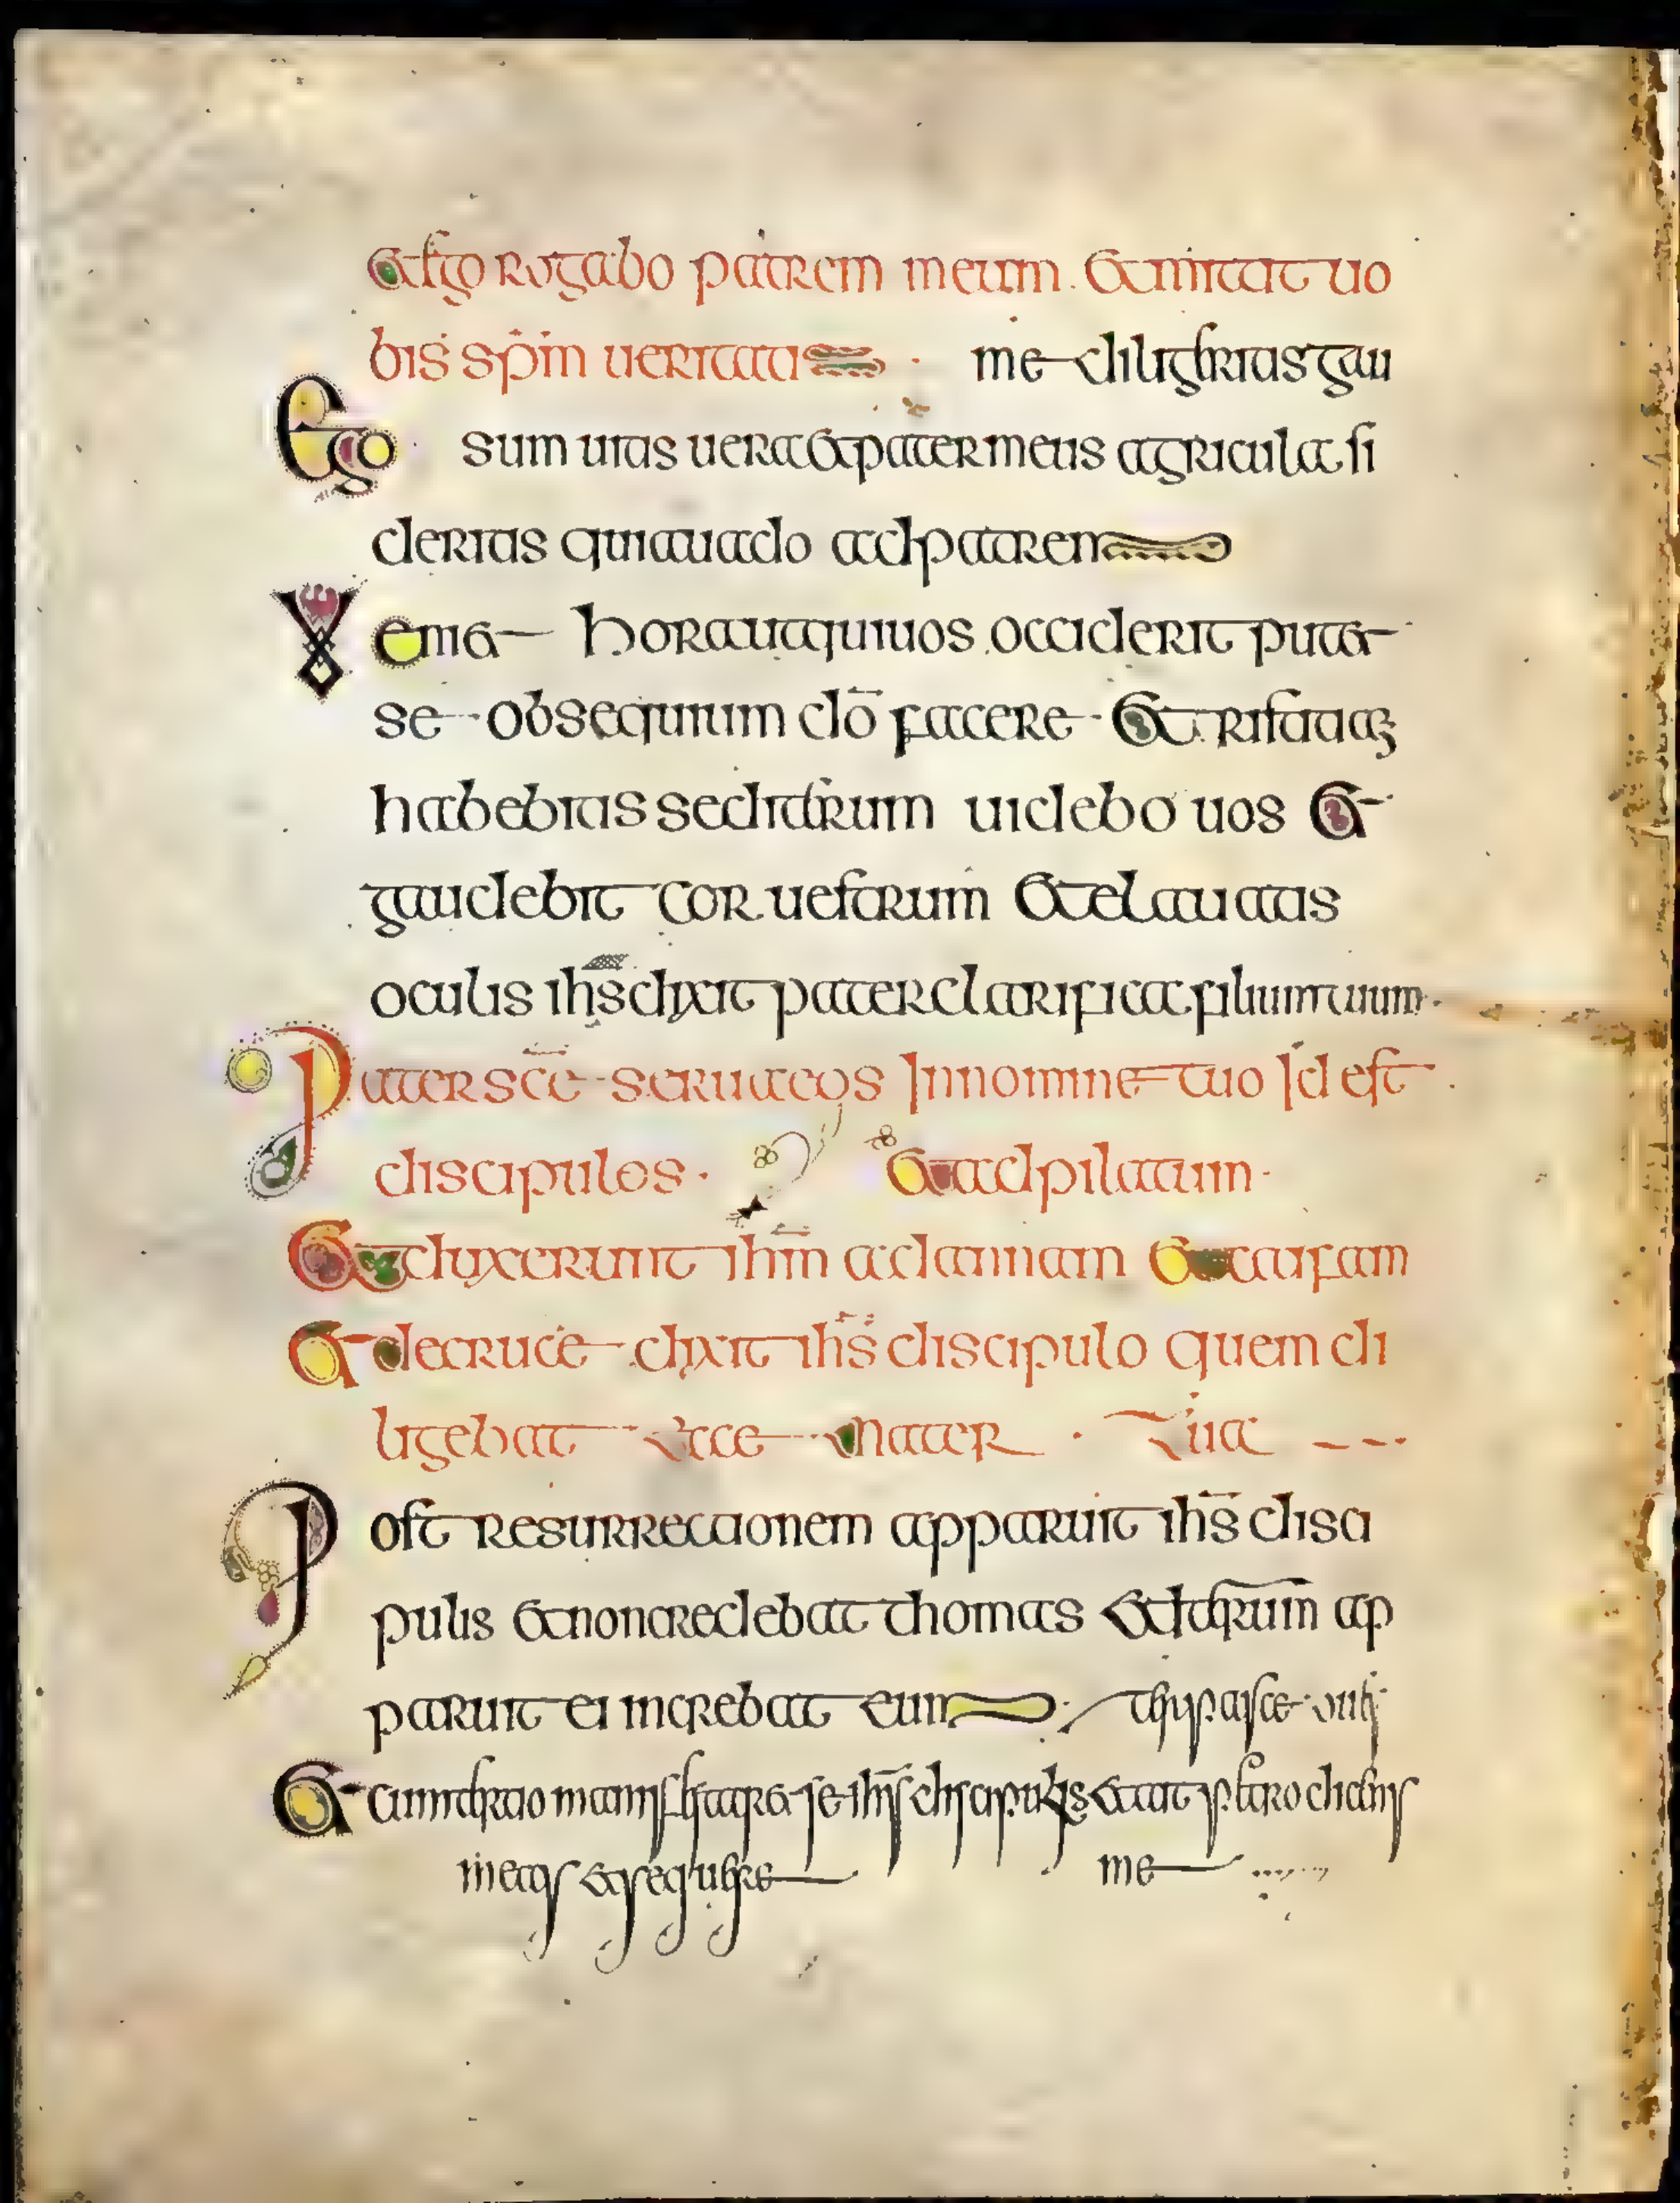 Et ego rogabo patrem meum. Et mittat uo
bis spm ueritatis · me diligeritis gau
Ego sum uitis uera et pater meus agricula si
deritis quia uado ad patrem
Veniet hora ut qui uos occiderit putet
se obsequium dō facere · Et tristitiaȝ
habebitis sed iterum uidebo uos et
gaudebit cor uestrum Et eleuatis
oculis ihs dixit pater clarifica filium tuum ·
Pater sce serua eos In nomine tuo Id est
discipulos · Et ad pilatum ·
Et adduxerunt ihm ad annam Et caifam
Et de cruce dixit ihs discipulo quem di
ligebat Ecce mater · Tua
Post resurrectionem apparuit ihs disci
pulis et non credebat thomas et iterum ap
paruit ei increbat eum
Et cum iterato manifestaret se ihs discipulis
meas et sequere me